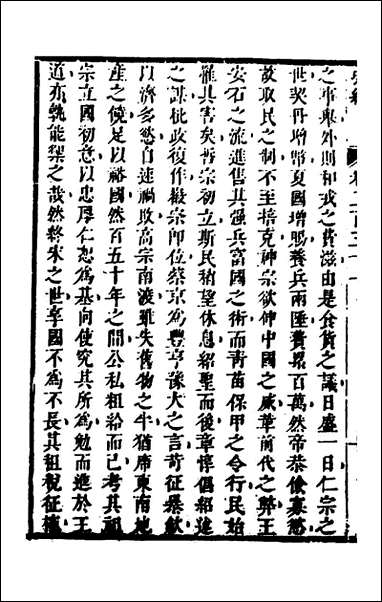 之事舉外則和戎之費滋由是食貨之議日盛一日仁宗之
世契丹增幣夏國增賜養兵兩陲費累百萬然帝恭儉寡慾
故取民之制不至掊克神宗欲伸中國之威革前代之弊王
安石之流進售其强兵富國之術而青苗保甲之令行民始
罹其害矣哲宗初立斯民稍望休息紹聖而後章惇倡紹述
之謀秕政復作徽宗即位蔡京爲豐亨豫大之言苛征暴斂
以濟多慾自速禍敗高宗南渡雖失舊物之半猶席東南地
產之饒足以裕國然百五十年之間公私粗給而已考其祖
宗立國初意以忠厚仁恕爲基向使究其所爲勉而進於王
道亦孰能禦之哉然終宋之世享國不爲不長其租稅征榷